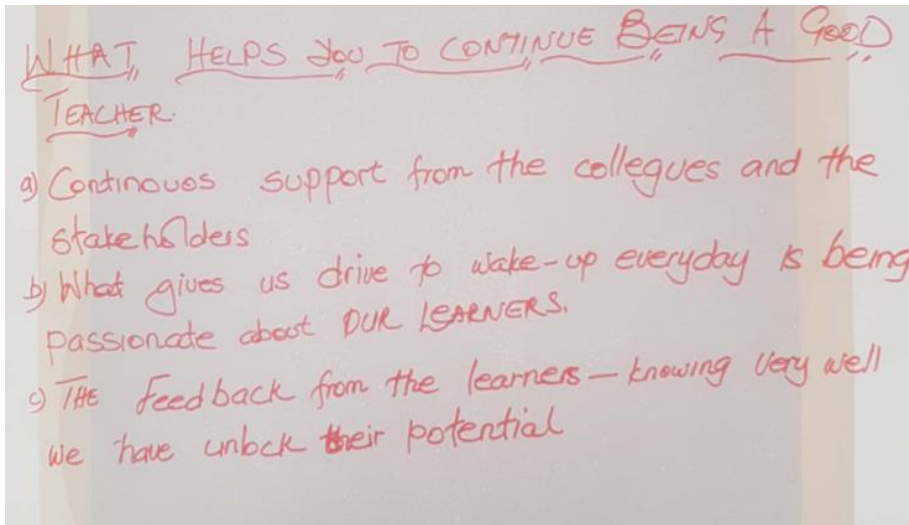 WHAT HELPS YOU TO CONTINUE BEING A GOOD
TEACHER.
a) Continoues support from the collegues and the
stakeholders
b) What gives us drive to wake-up everyday is being
passionate about OUR LEARNERS.
c) THE feedback from the learners — knowing very well
we have unlock their potential